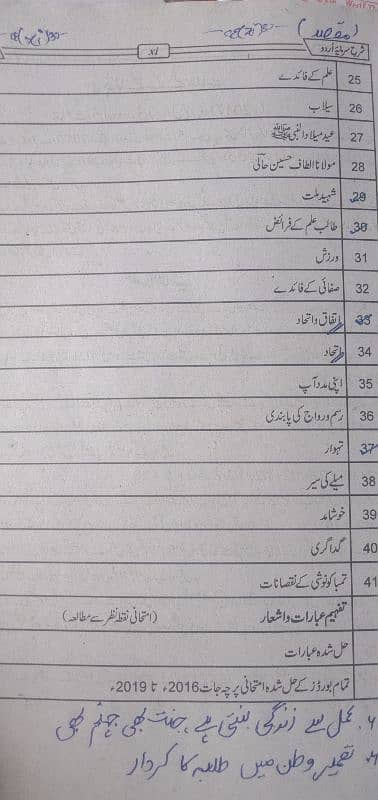 (مقصد)
شرح سرمایۂ اردو
xi
25 علم کے فائدے
26 سیلاب
27 عید میلاد النبی ﷺ
28 مولانا الطاف حسین حالی
29 شہید ملت
30 طالب علم کے فرائض
31 ورزش
32 صفائی کے فائدے
33 اتفاق و اتحاد
34 اتحاد
35 اپنی مدد آپ
36 رسم و رواج کی پابندی
37 تہوار
38 میلے کی سیر
39 خوشامد
40 گداگری
41 تمباکو نوشی کے نقصانات
تفہیم عبارات و اشعار (امتحانی نقطۂ نظر سے مطالعہ)
حل شدہ عبارات
تمام بورڈز کے حل شدہ امتحانی پرچہ جات 2016ء تا 2019ء
عمل سے زندگی بنتی ہے جنت بھی جہنم بھی
تعمیر وطن میں طلبہ کا کردار